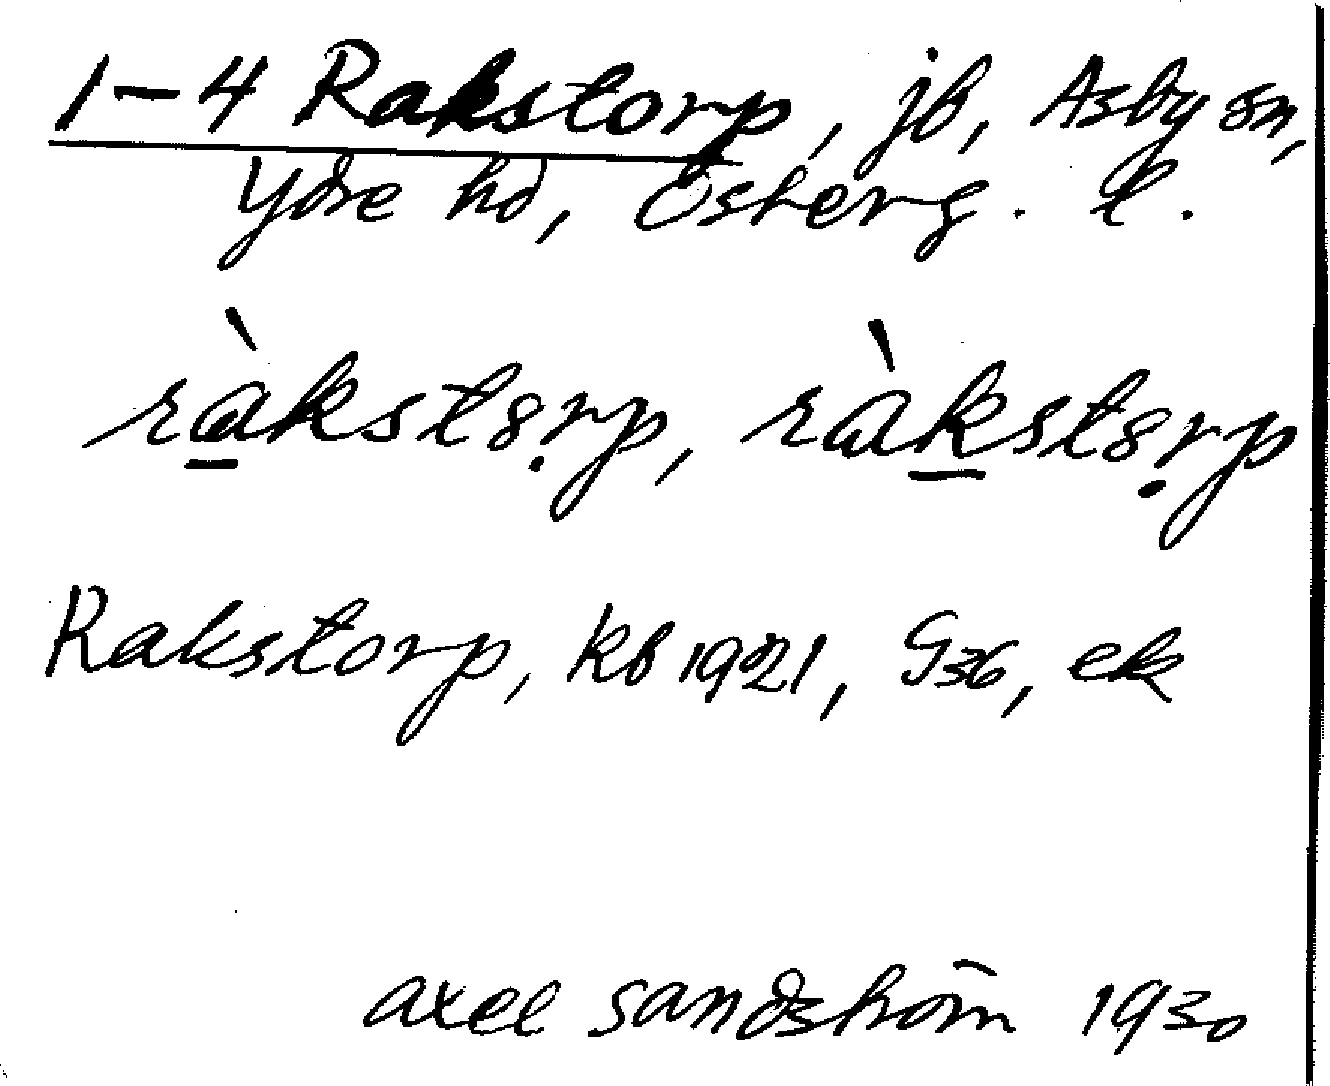 1-4 Rakstorp, jb, Asby sn,
Ydre hd, Österg. l.
ràkstorp, ràkstorp
Rakstorp, kb 1921, G36, ek
axel sandström 1930